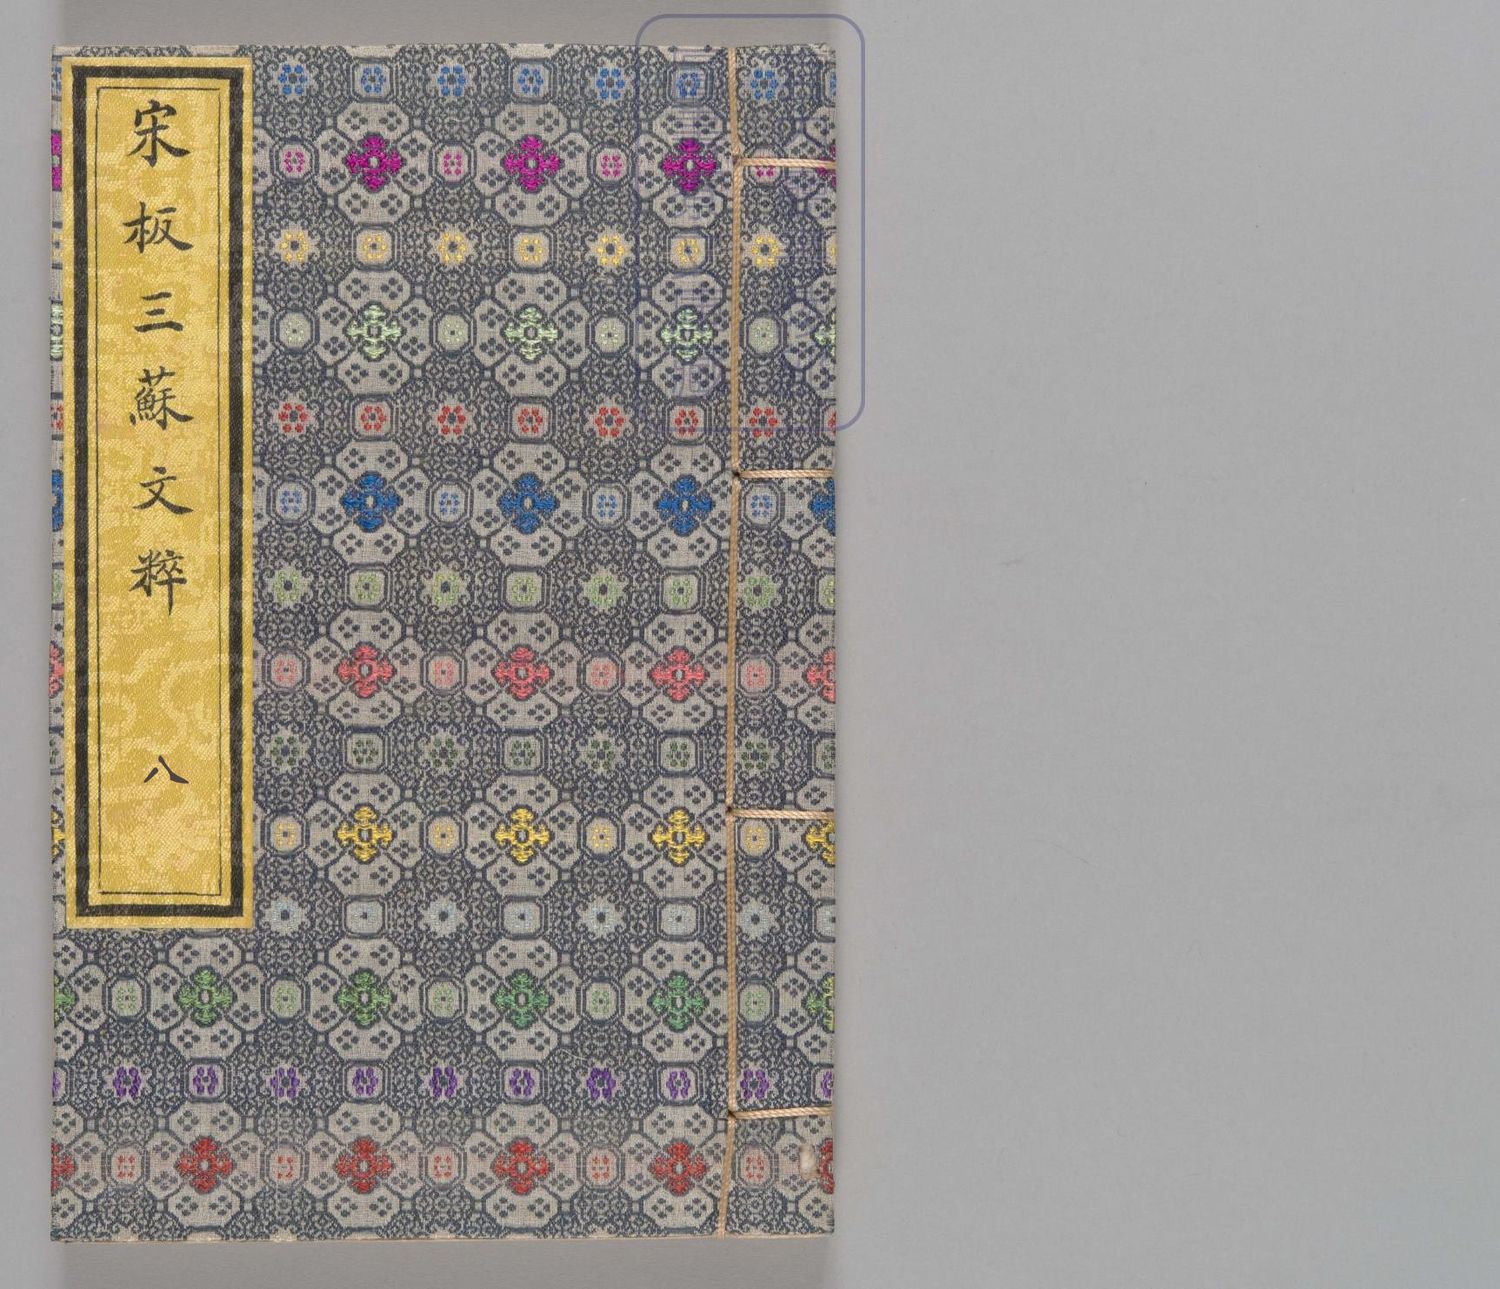 宋板三蘇文粹 八